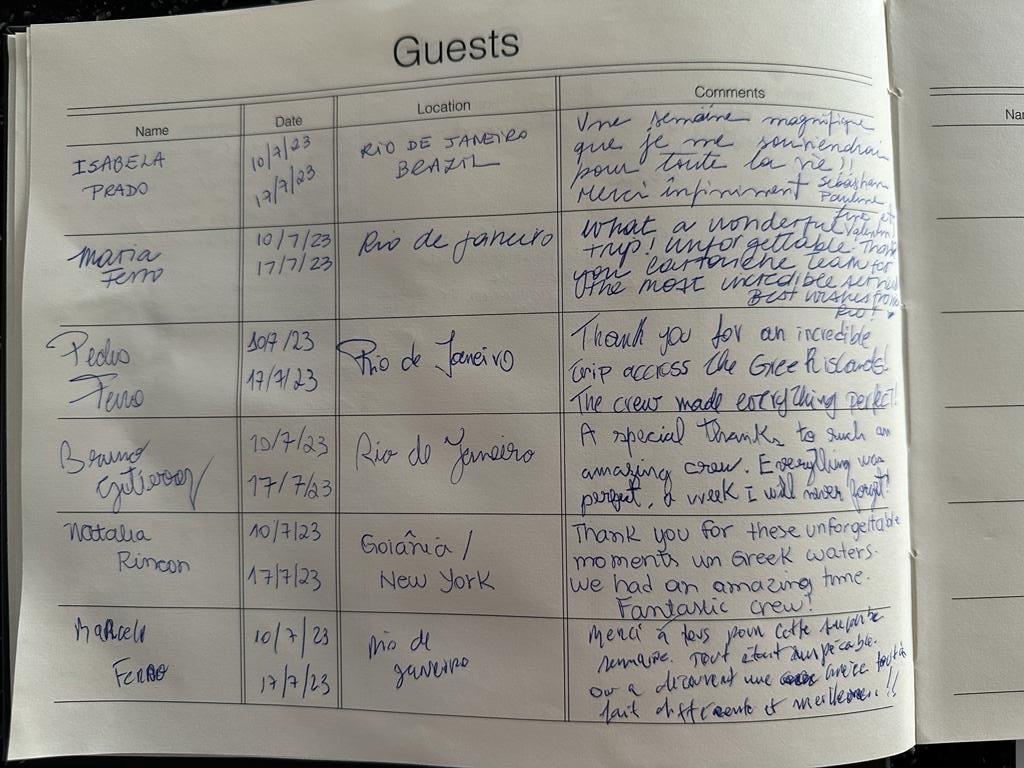 Guests
Name
Date
Location
Comments
Na
ISABELA
PRADO
10/7/23
17/7/23
RIO DE JANEIRO
BRAZIL
Une semaine magnifique
que je me souviendrai
pour toute la vie!!
Merci infiniment Sebastian
Pauline
et
Valentin
Maria
Ferro
10/7/23
17/7/23
Rio de Janeiro
What a wonderful
trip! Unforgettable. Thank
you cartouche team for
the most incredible service
Best wishes from
Rio!
Pedro
Ferro
10/7/23
17/7/23
Rio de Janeiro
Thank you for an incredible
trip accross the Greek islands!
The crew made everything perfect!
Bruno
10/7/23
17/7/23
Rio de Janeiro
A special thanks to such an
amazing crew. Everything was
perfect, a week I will never forget!
Natalia
Rincon
10/7/23
17/7/23
Goiânia /
New York
Thank you for these unforgettable
moments in Greek waters.
We had an amazing time.
Fantastic crew!
Marcelo
Ferro
10/7/23
17/7/23
Rio de
Janeiro
Merci à tous pour cette superbe
semaine. Tout était impécable.
On a découvert une Grèce tout à
fait différente et meilleure!!!